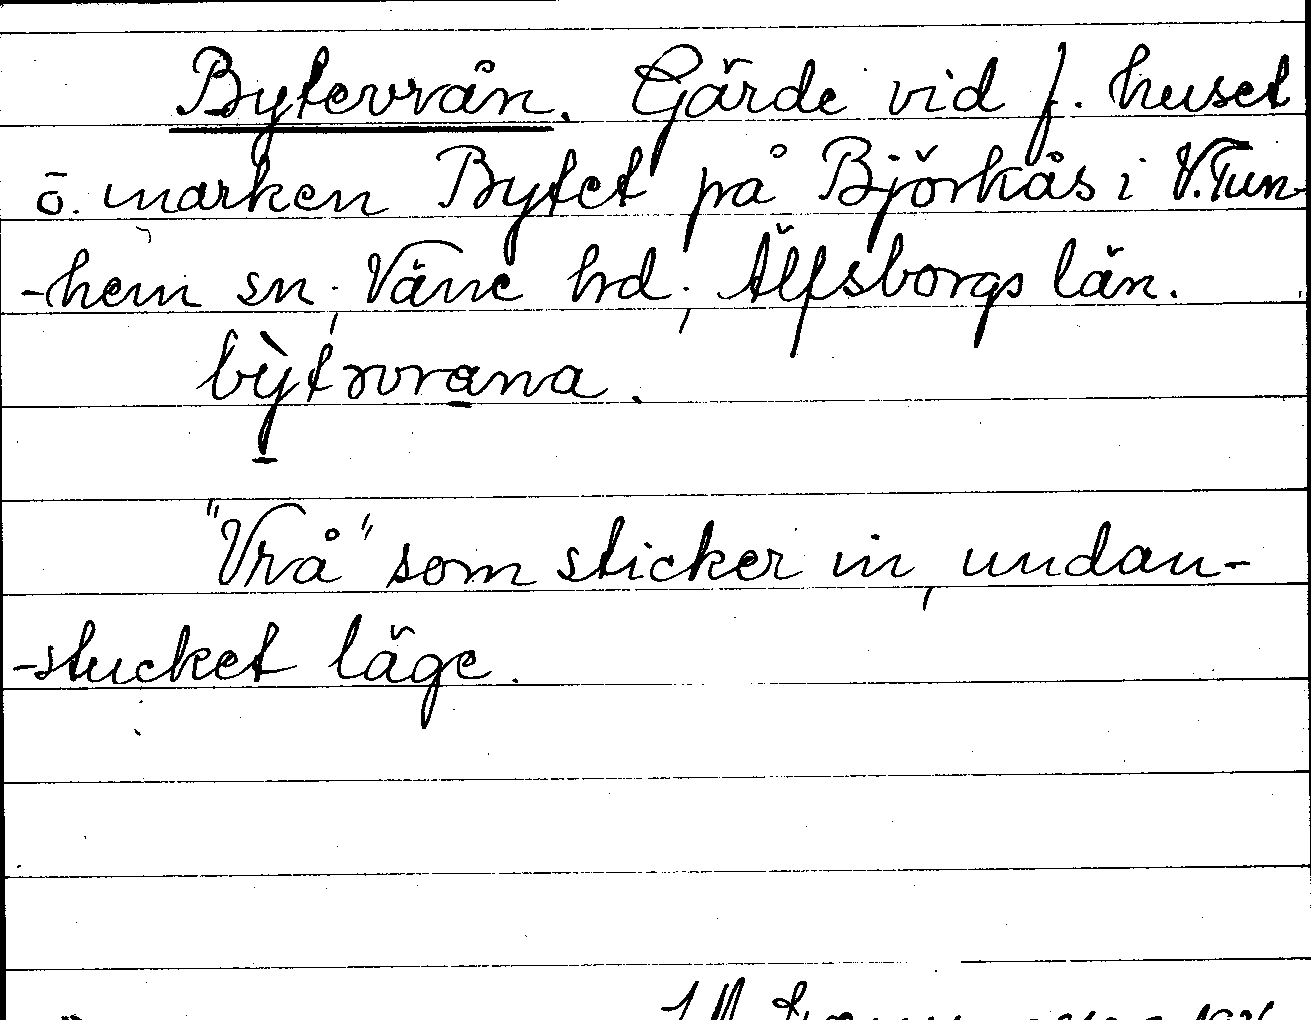 Bytevrån. Gärde vid f. huset
o. marken Bytet på Björkås i V. Tun-
-hem sn, Väne hd, Älfsborgs län.
bỳtǝvrana.
"Vrå" som sticker in, undan-
-stucket läge.